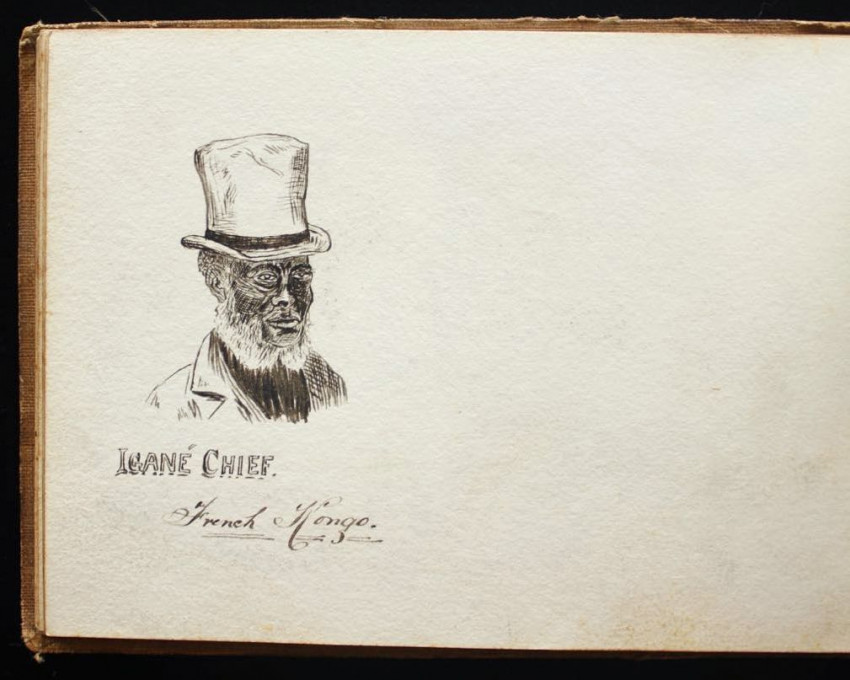 IGANÉ CHIEF.
French Kongo.